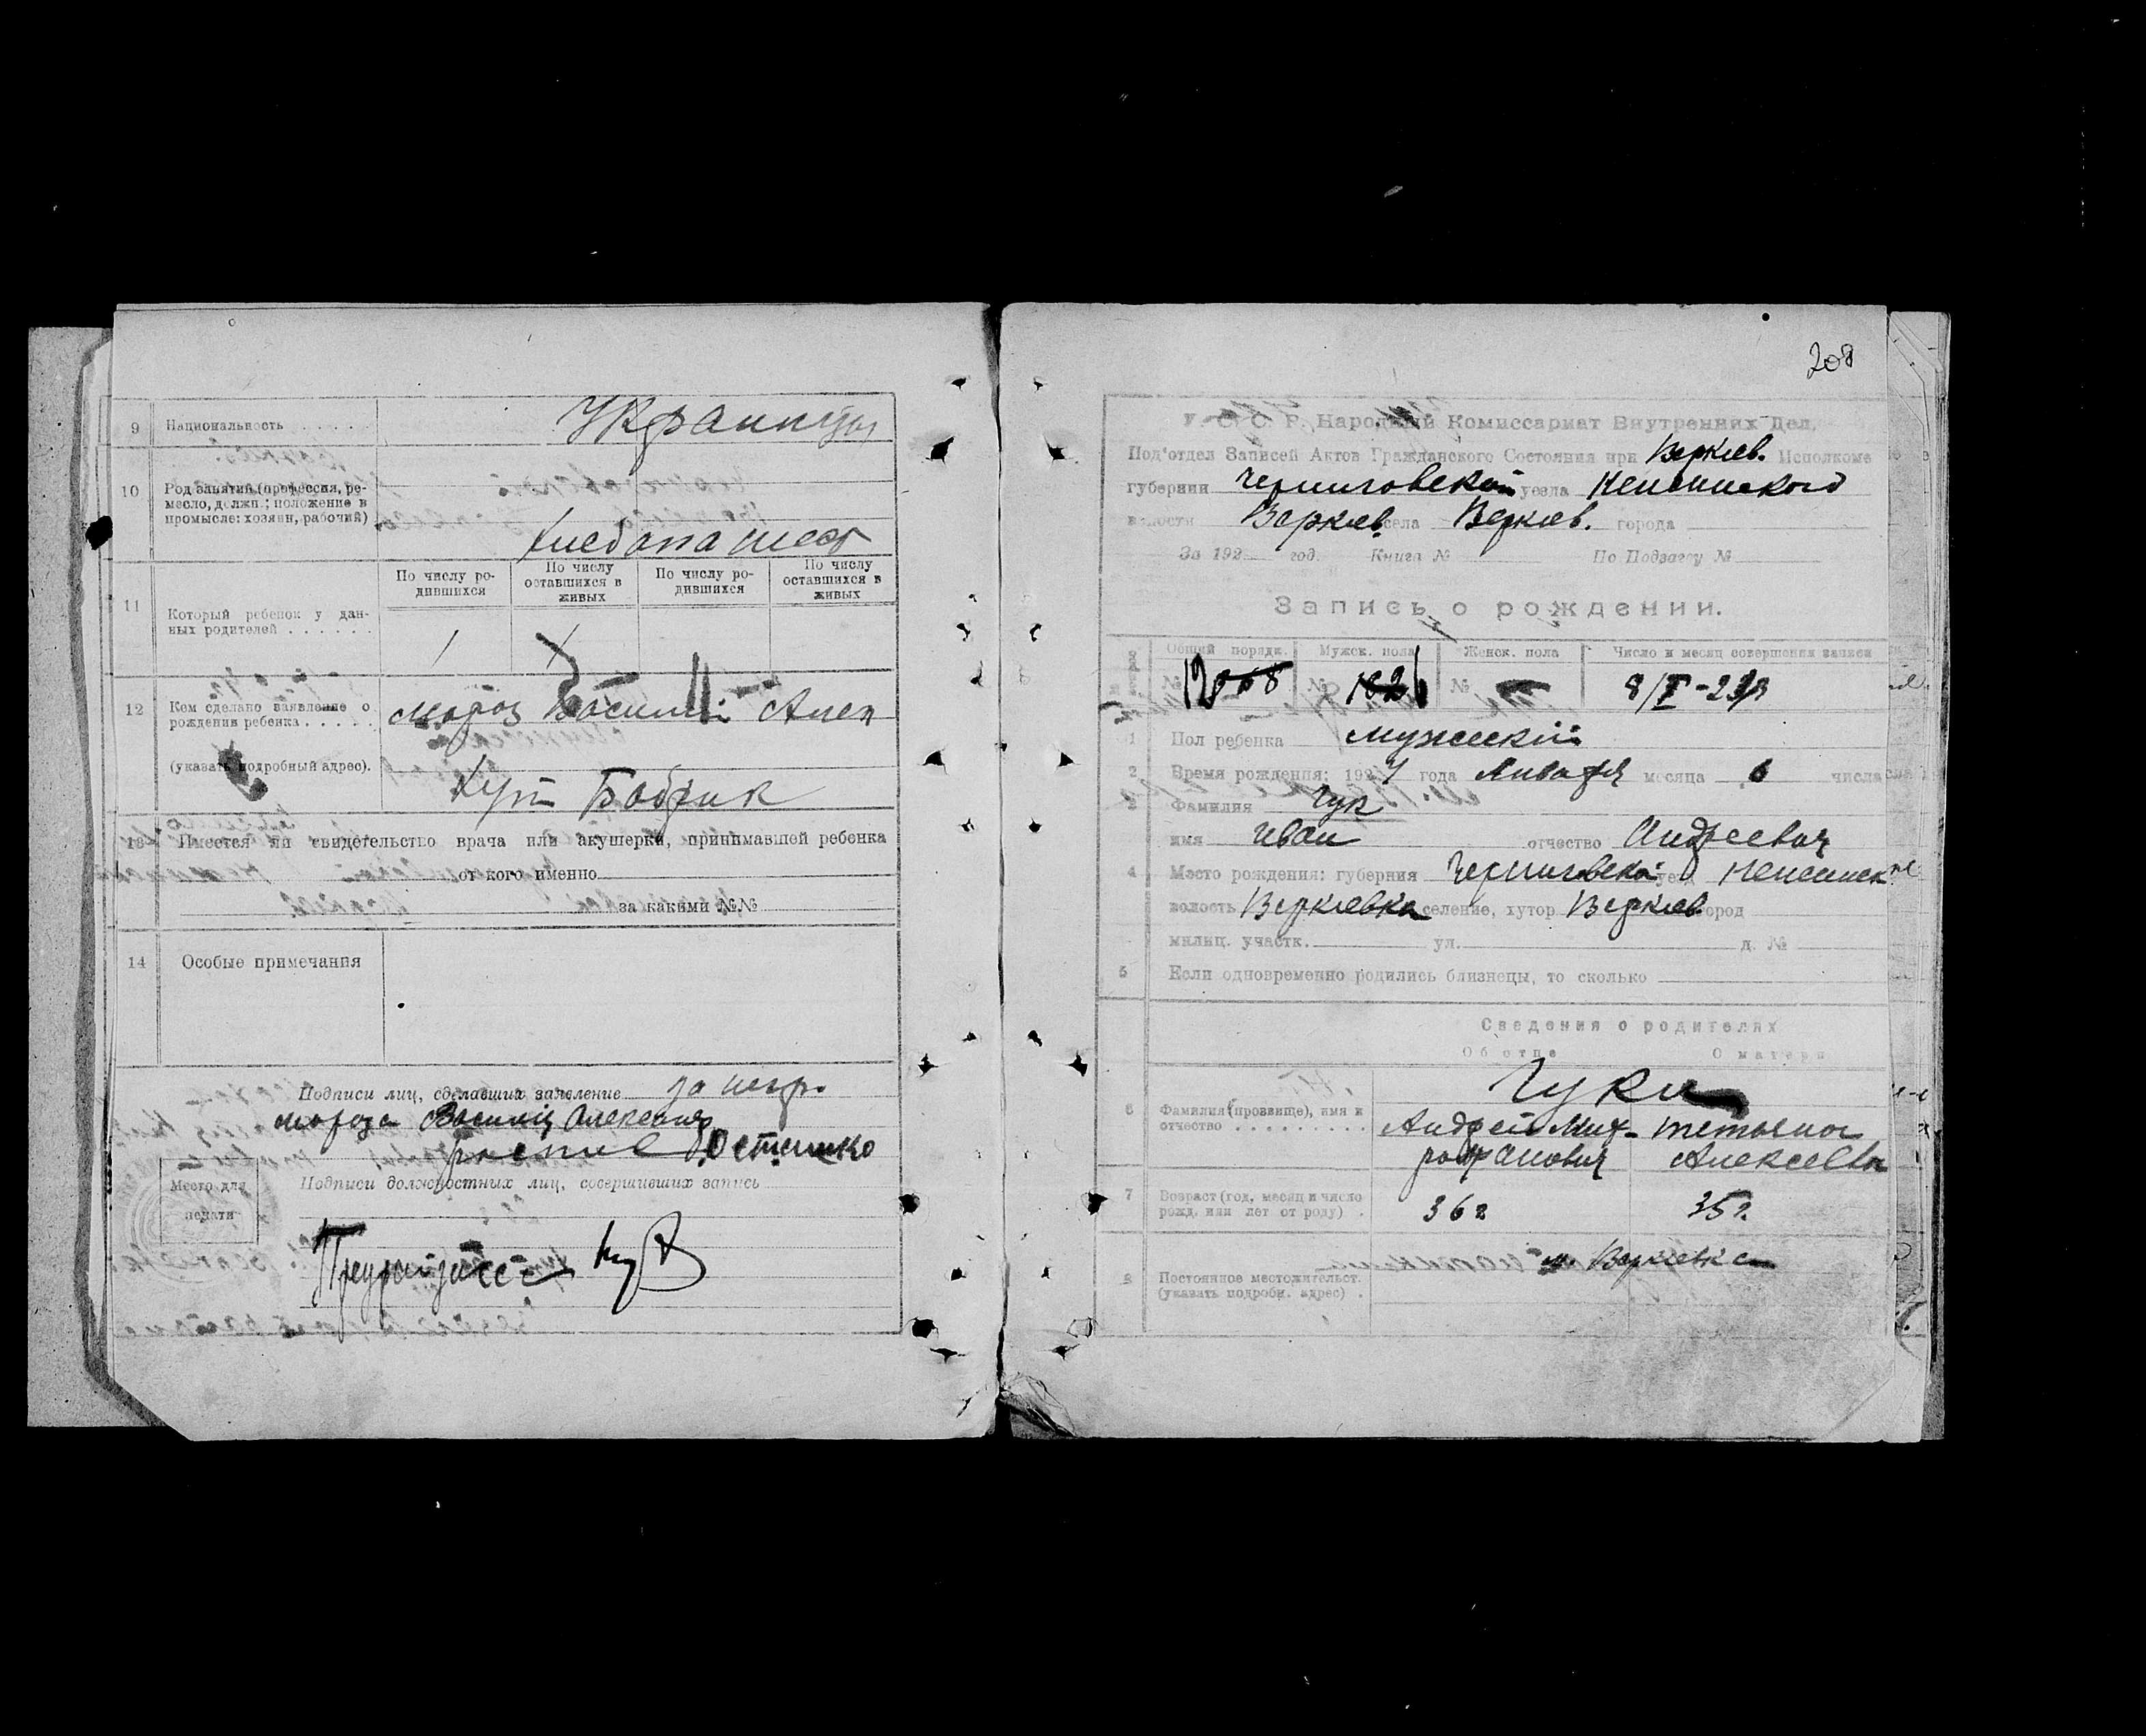 9 Национальность . . . . . . Украинцы
10 Род занятий (профессия, ре-
месло, должн.; положение в
промысле: хозяин, рабочий)
Хлебопашест
11 Который ребенок у дан-
ных родителей . . . . . .
По числу ро-
дившихся
По числу
оставшихся в
живых
По числу ро-
дившихся
По числу
оставшихся в
живых
12 Кем сделано заявление о
рождении ребенка . . . . .
Мороз Василий Алек
(указать подробный адрес).
Хут Бобрик
13 Имеется ли свидетельство врача или акушерки, принимавшей ребенка
от кого именно
за какими №№
14 Особые примечания
Подписи лиц, сделавших заявление за негр.
Мороза Василия Алексеев
Остапко
Подписи должностных лиц, совершивших запись
Место для
печати
208
У. С. С. Р. Народный Комиссариат Внутренних Дел,
Под'отдел Записей Актов Гражданского Состояния при Веркиев. Исполкоме
губернии Черниговской уезда Неженского
волости Веркиев. села Веркиев. города
За 192 год. Книга № По Подзагсу №
Запись о рождении.
Общий порядк. Мужск. пола Женск. пола Число и месяц совершения записи
№ № №
1 Пол ребенка мужеский
2 Время рождения: 192 года Января месяца 6 числа
3 Фамилия Чук
имя Иван отчество Андреевич
4 Место рождения: губерния Черниговской уезд Неженск
волость Веркиевка селение, хутор Веркиев город
милиц. участк. ул. д. №
5 Если одновременно родились близнецы, то сколько
Сведения о родителях
Об отце О матери
6 Фамилия (прозвище), имя и
отчество . . . . . . . . .
Чуки
Андрей Мит- Тетьяна
рофанович Алексеевна
7 Возраст (год, месяц и число
рожд. или лет от роду) .
36 г 35 г.
8 Постоянное местожительст.
(указать подробн. адрес) .
м. Веркиевка